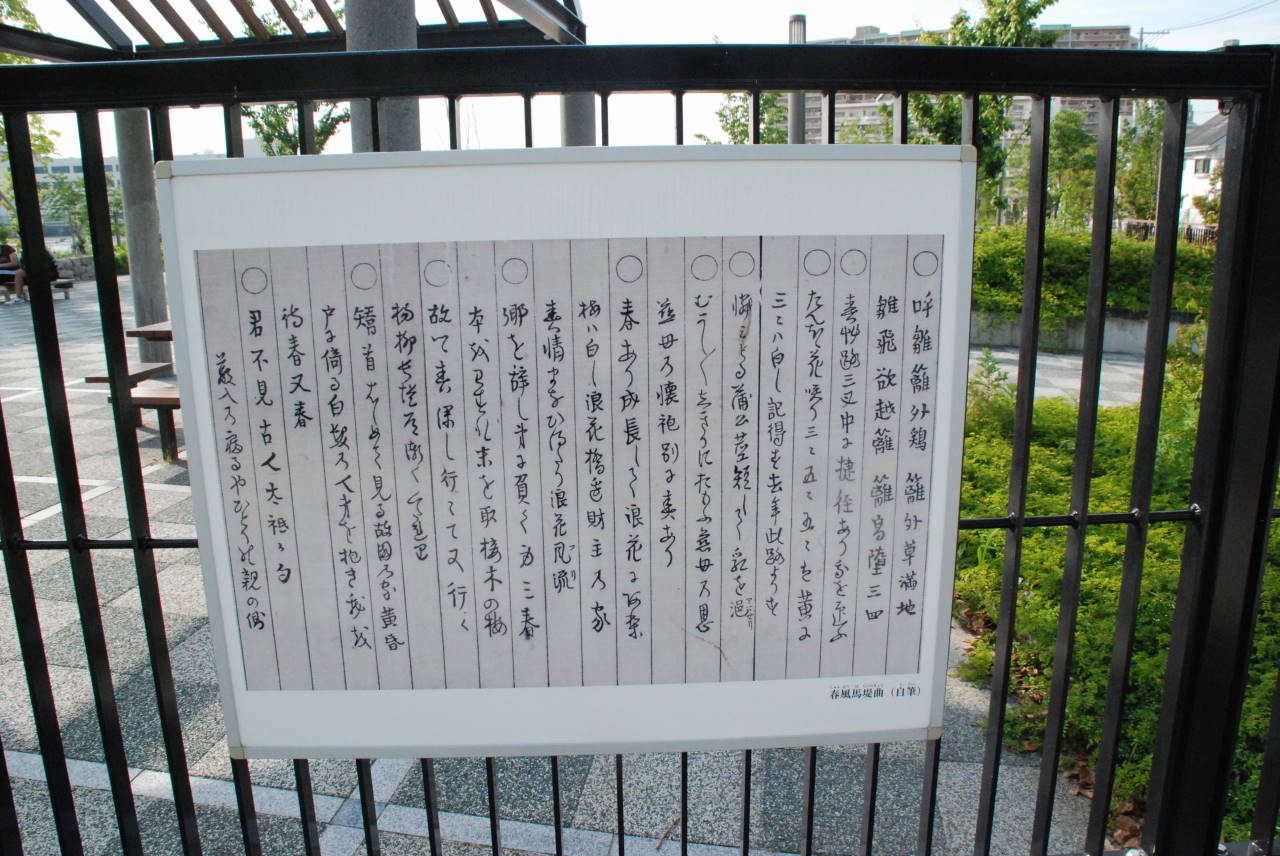 ○呼雛籬外鶏 籬外草満地
雛飛欲越籬 籬高堕三四
○春艸路三叉中に捷径あり我を迎ふ
○たんぽゝ花咲り三々五々五々は黄に
三々ハ白し記得す去年此路よりす
○憐ミとる蒲公茎短して乳を浥
アマセリ
○むかし/\しきりにおもふ慈母の恩
慈母の懐袍別に春あり
○春あり成長して浪花にあり
梅ハ白し浪花橋辺財主の家
春情まなび得たり浪花風流
ブリ
○郷を辞し弟に負く身三春
本をわすれ末を取接木の梅
○故郷春深し行々て又行々
楊柳長堤道漸くくだれり
○矯首はじめて見る故園の家黄昏
戸に倚る白髪の人弟を抱き我を
待春又春
○君不見古人太祇が句
薮入の寝るやひとりの親の側
春風馬堤曲（自筆）